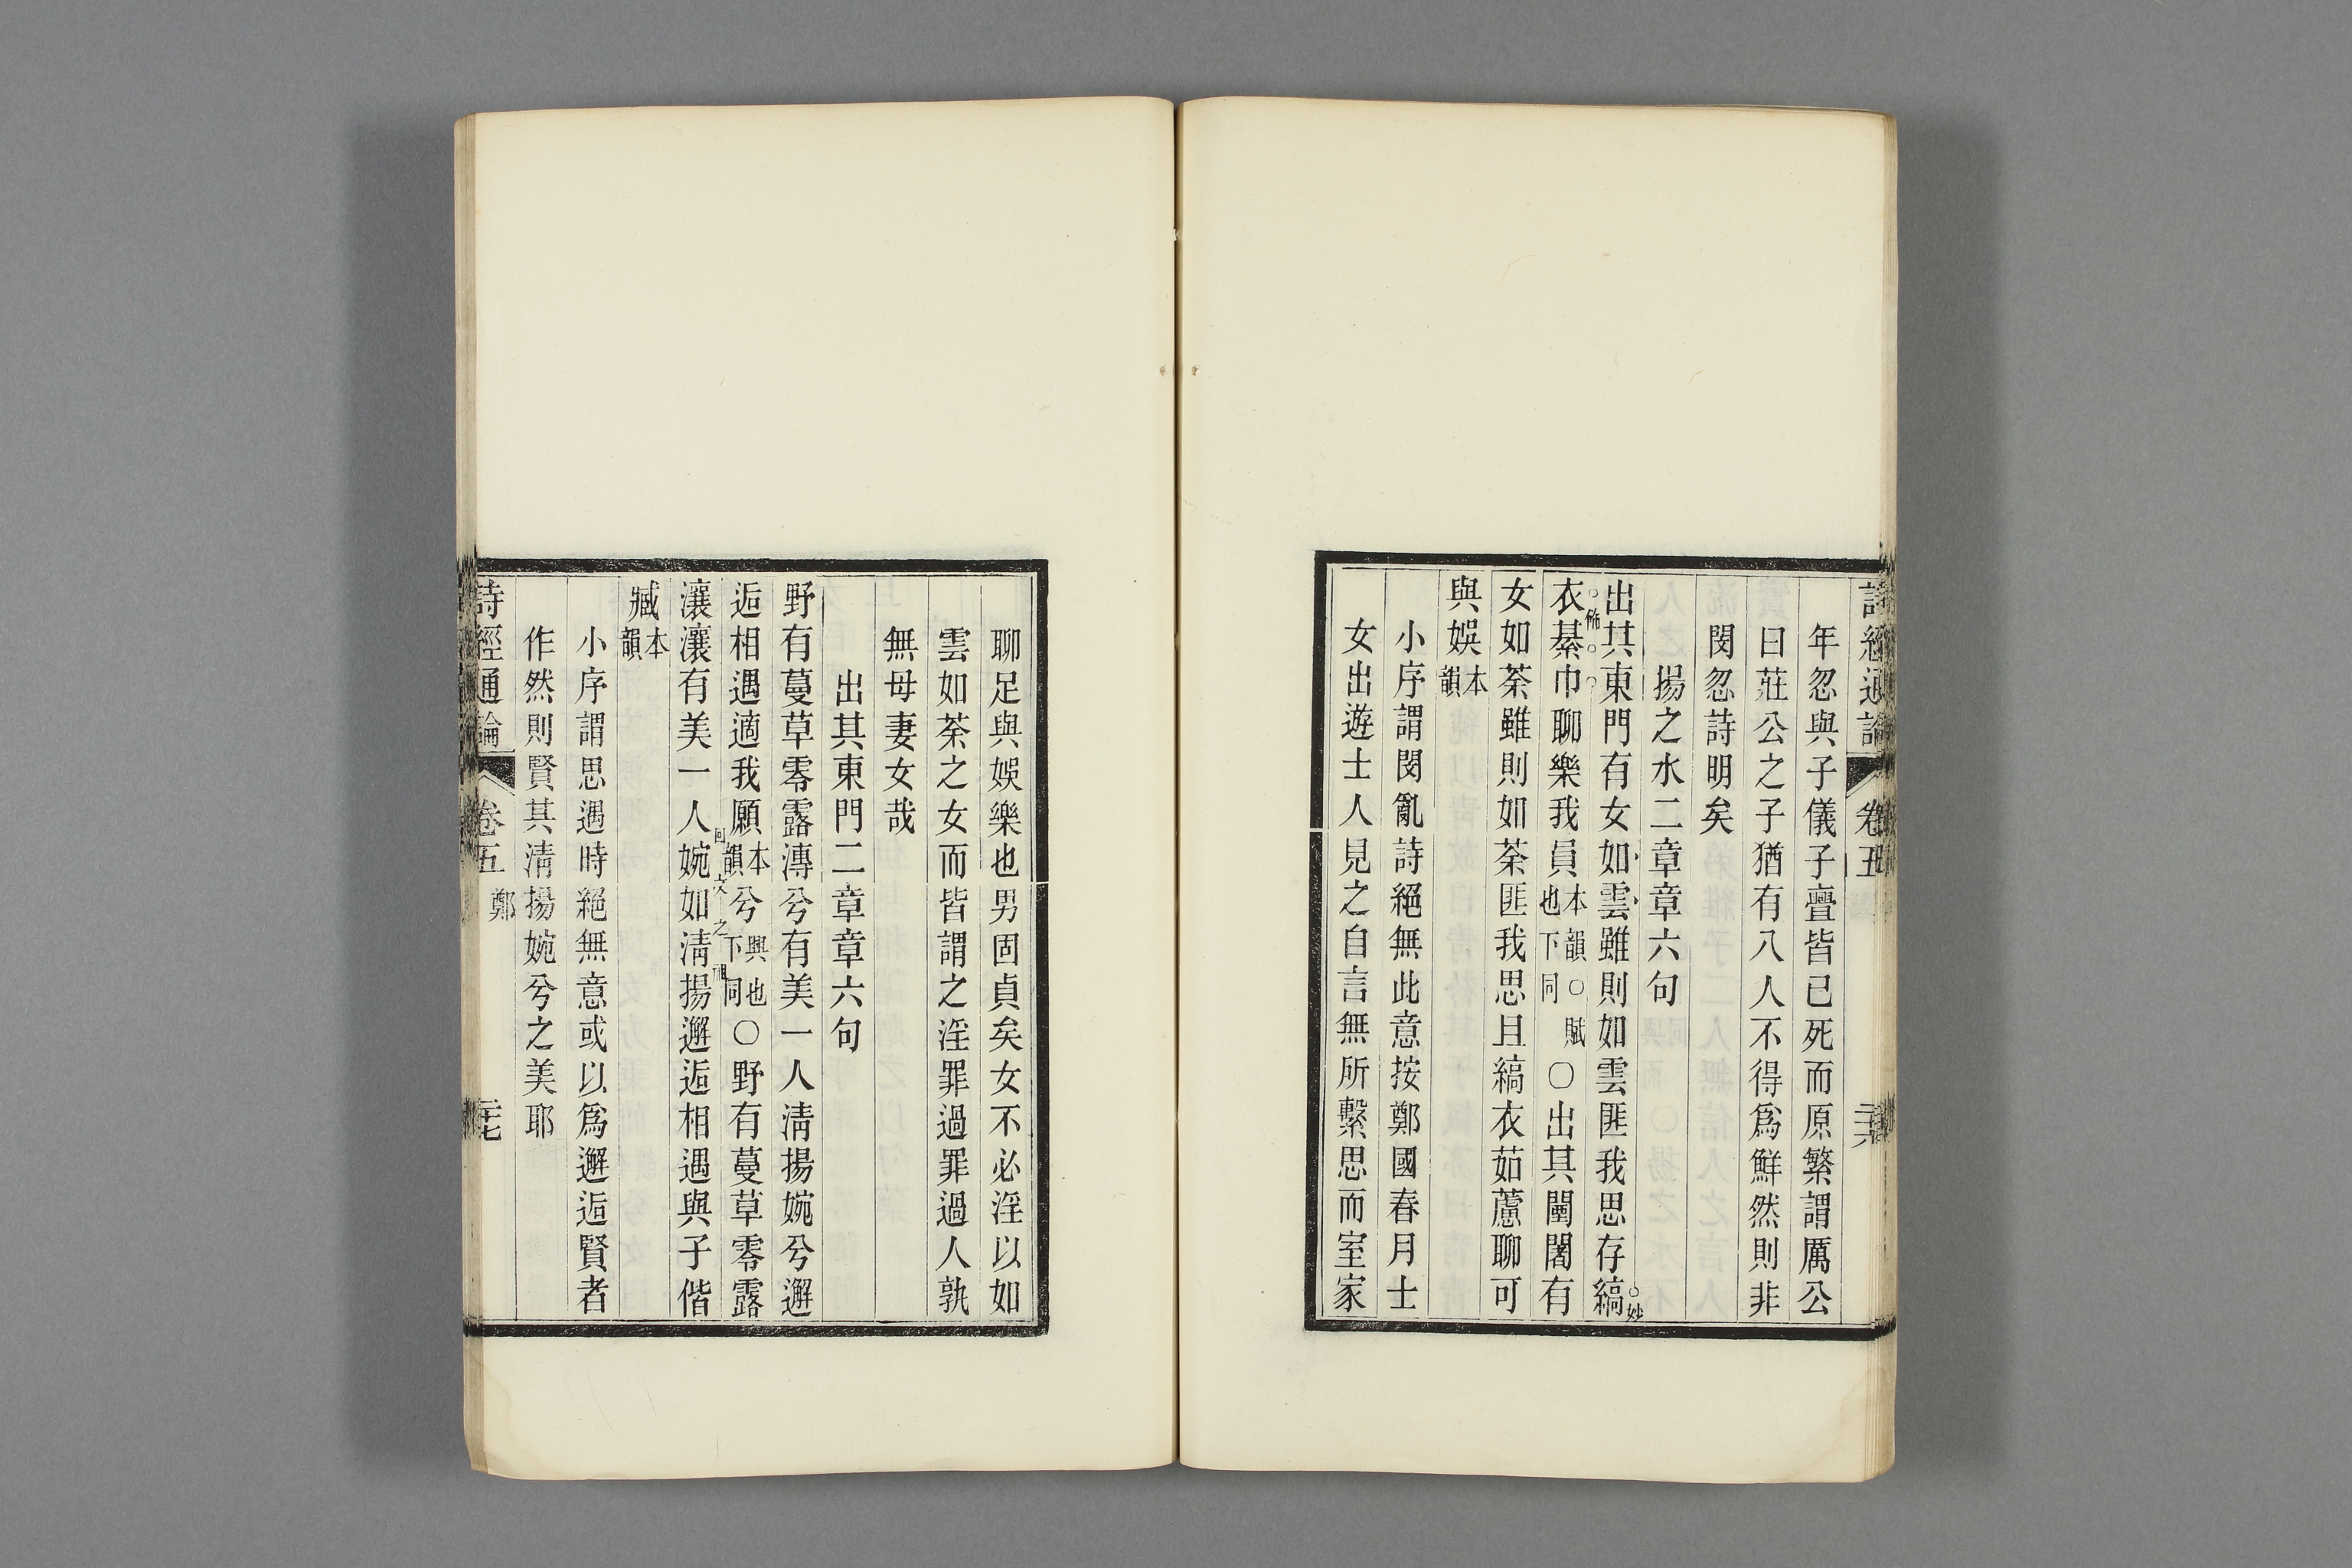 詩經通論 卷五 二十六
年忽與子儀子亹皆已死而原繁謂厲公
曰莊公之子猶有八人不得爲鮮然則非
閔忽詩明矣
揚之水二章章六句
出其東門有女如雲雖則如雲匪我思存縞
妙
衣綦巾聊樂我員本韻○賦也下同○出其闉闍有
佈
女如荼雖則如荼匪我思且縞衣茹藘聊可
與娛本韻
小序謂閔亂詩絕無此意按鄭國春月士
女出遊士人見之自言無所繫思而室家
聊足與娛樂也男固貞矣女不必淫以如
雲如荼之女而皆謂之淫罪過罪過人孰
無母妻女哉
出其東門二章章六句
野有蔓草零露漙兮有美一人淸揚婉兮邂
逅相遇適我願本韻兮興也下同○野有蔓草零露
瀼瀼有美一人婉如淸揚邂逅相遇與子偕
回文之祖
臧本韻
小序謂思遇時絕無意或以爲邂逅賢者
作然則賢其淸揚婉兮之美耶
詩經通論 卷五 鄭 二十七